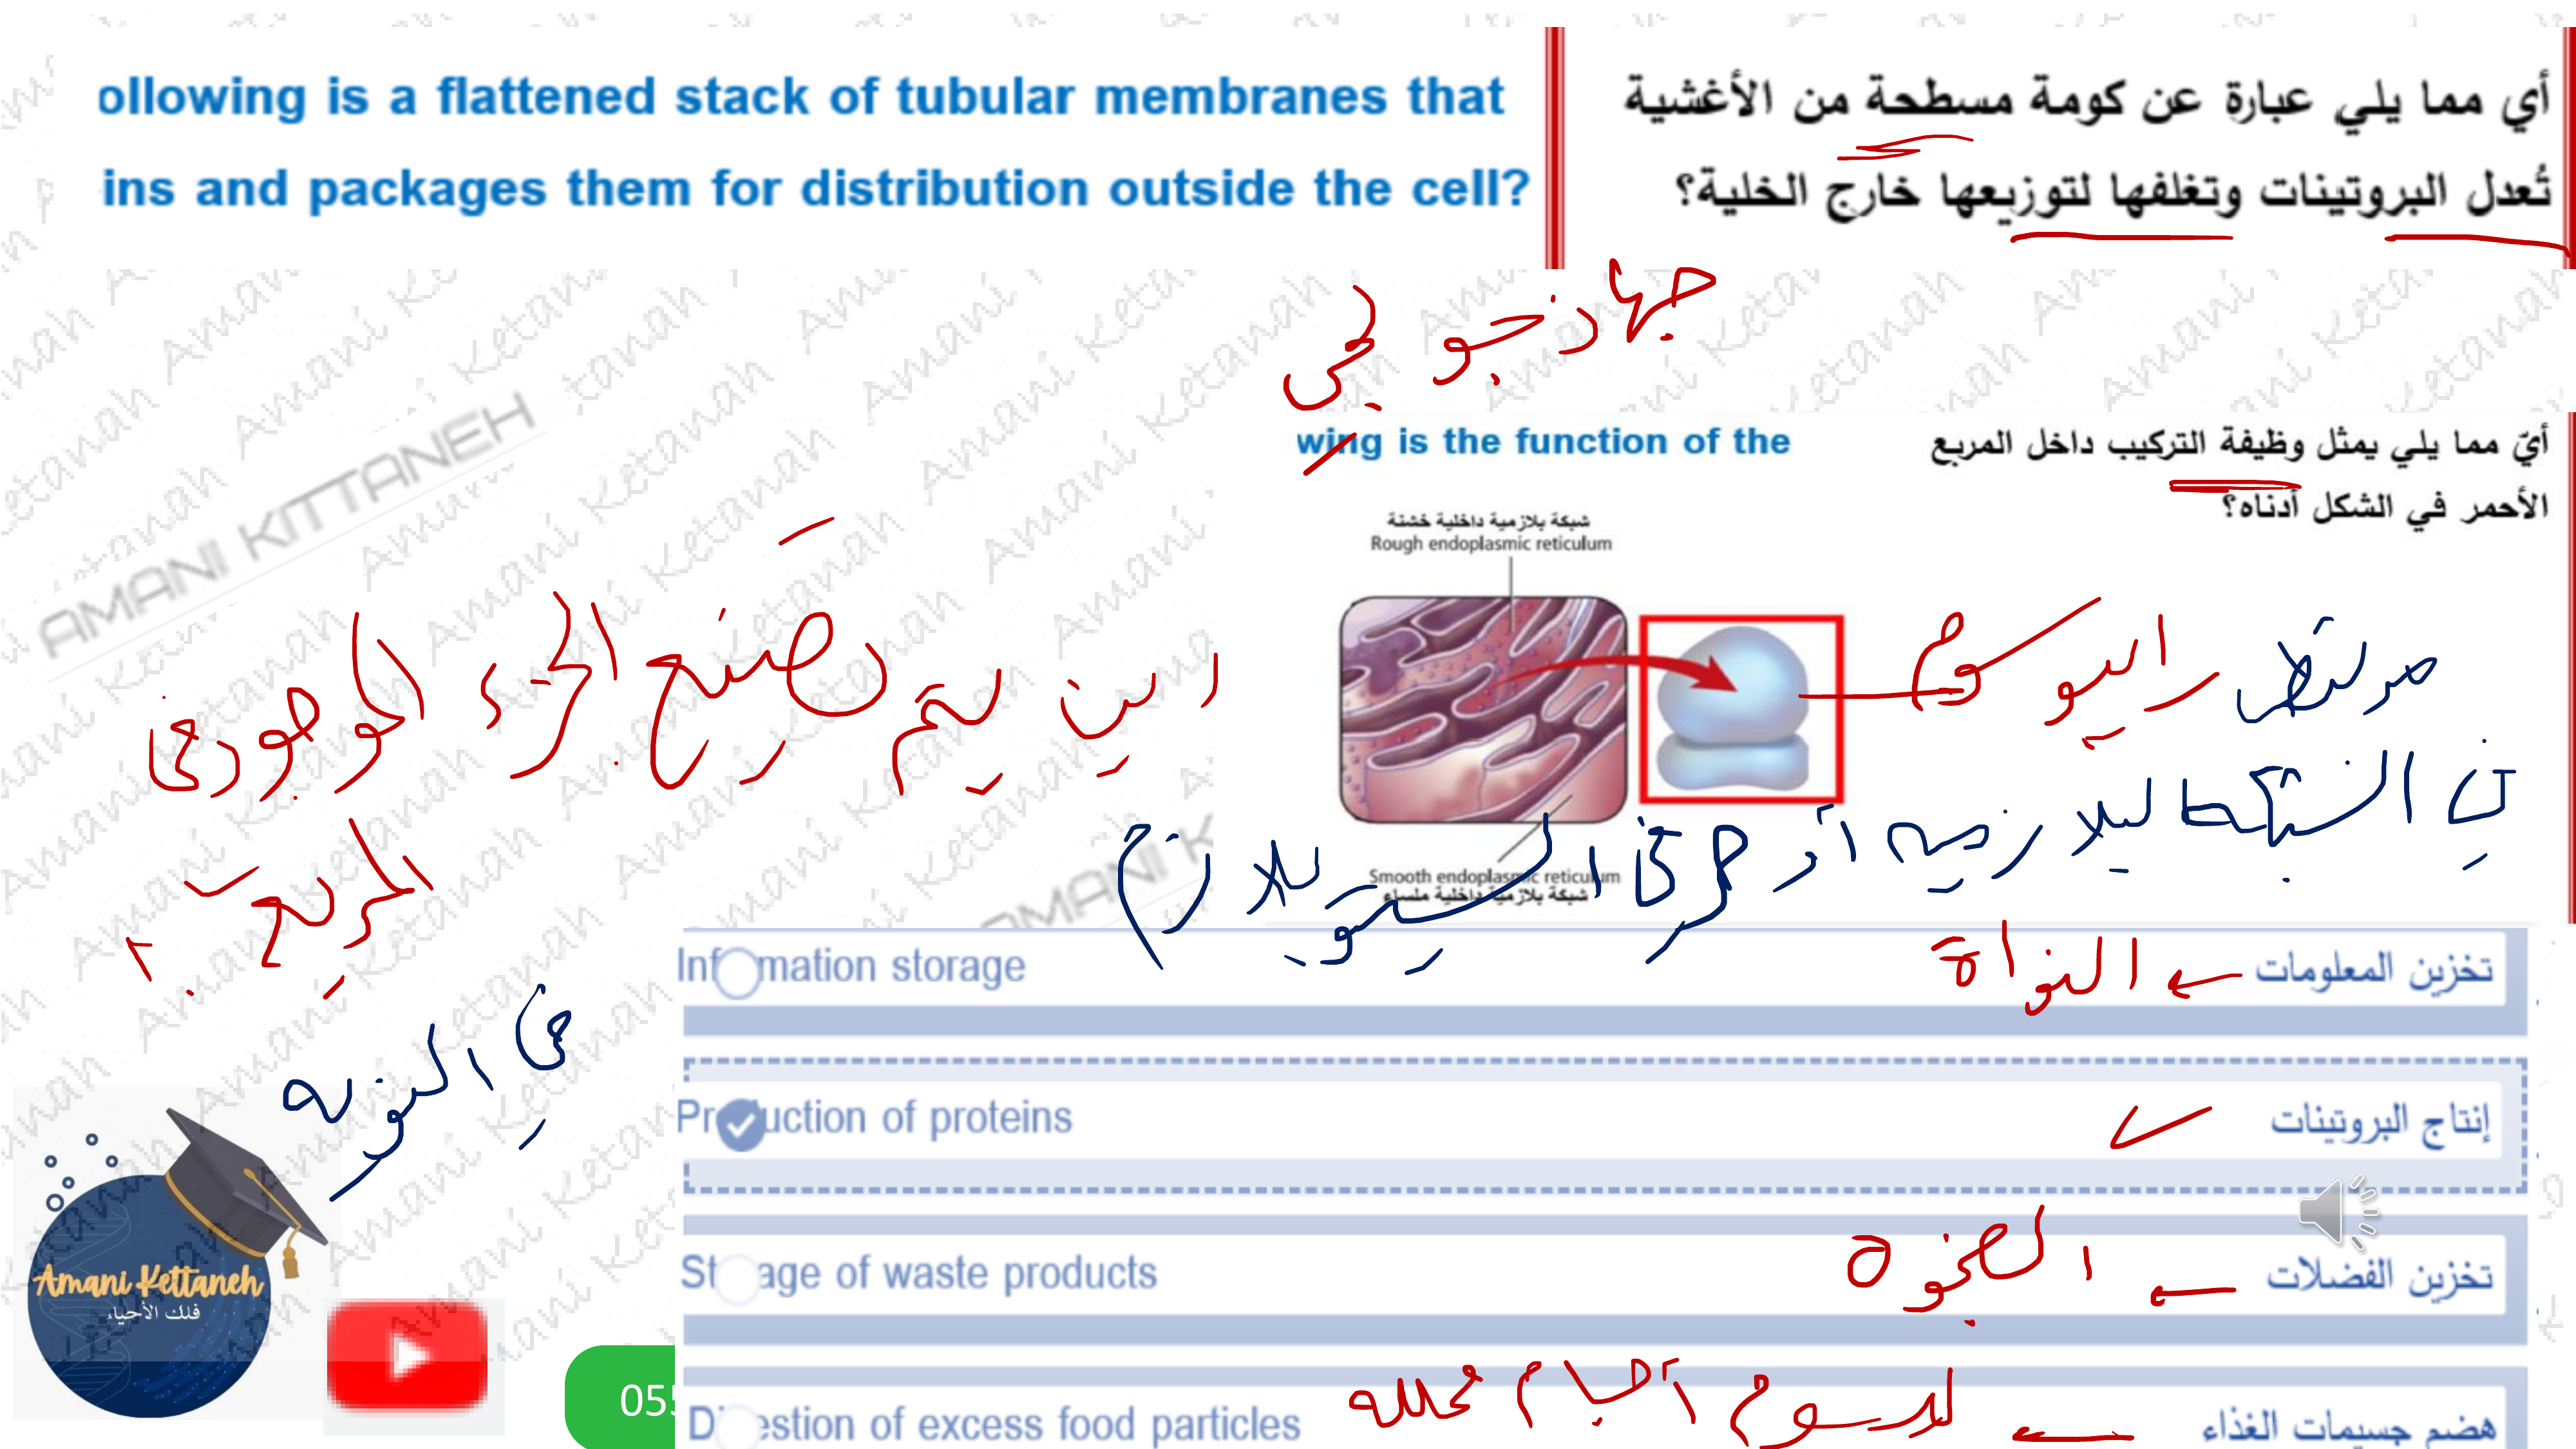 ollowing is a flattened stack of tubular membranes that
ins and packages them for distribution outside the cell?
أي مما يلي عبارة عن كومة مسطحة من الأغشية
تُعدل البروتينات وتغلفها لتوزيعها خارج الخلية؟
جهاز جولجي
wing is the function of the
أيّ مما يلي يمثل وظيفة التركيب داخل المربع
الأحمر في الشكل أدناه؟
شبكة بلازمية داخلية خشنة
Rough endoplasmic reticulum
رايبوسوم
في الشبكة البلازمية أو حر في السيتوبلازم
Smooth endoplasmic reticulum
شبكة بلازمية داخلية ملساء
اين يتم تصنيع الجزء الموجود في
المربع ؟
في النوية
Information storage
تخزين المعلومات ← النواة
Production of proteins
إنتاج البروتينات
Storage of waste products
تخزين الفضلات ← الفجوة
Digestion of excess food particles
هضم جسيمات الغذاء ←
أجسام محللة
AMANI KITTANEH
Amani Kettaneh
فلك الأحياء
055